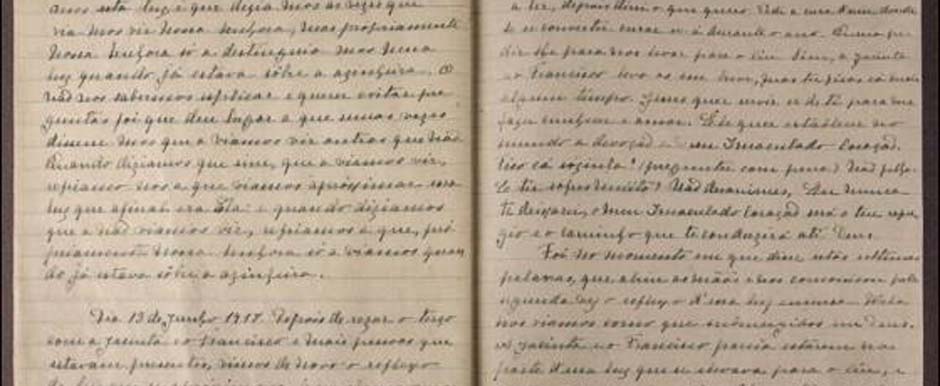 amos esta luz e que dezia mos as vezes que
via mos vir Nossa Senhora, mas propriamente
Nossa Senhora só a destinguia mos nessa
luz quando já estava sôbre a azenheira. O
não nos sabermos esplicar e querer evitar pre
guntas foi que deu lugar a que umas vezes
disesse mos que a viamos vir outras que não
Quando diziamos que sim, que a viamos vir,
referiamo nos a que viamos aprossimar essa
luz que afinal era Ela. e quando diziamos
que a não viamos vir, referiamo a que, pró
priamente Nossa Senhora só a viamos quan
do já estava sôbre a azinheira.
Dia 13 de Junho 1917. Depois de rezar o terço
com a Jacinta e o Francisco e mais pessoas que
estavam presentes, vimos de novo o reflexo
a ler, depois direi o que quero. Pedi a cura d'um doente
Se se converter curar se á durante o ano. Queria pe
dir lhe para nos levar para o Céu. Sim, a Jacinta
e o Francisco levo os em breve, mas tu ficas cá mais
algum tempo. Jesus quer servir se de ti para me
fazer conhecer e amar. Ele quer estabelecer no
mundo a devoção a meu Imaculado Coração.
Fico cá sózinha? (preguntei com pena) Não filha.
E tu sofres muito? Não desanimes, Eu nunca
te deixarei, o meu Imaculado Coração será o teu refu
gio e o caminho que te conduzirá até Deus.
Foi no momento em que disse estas ultimas
palavras, que abriu as mãos e nos comonicou pela
segunda vez o reflexo d'essa luz emensa. N'ela
nos viamos como que submergidos em Deus.
A Jacinta e o Francisco parecia estarem na
parte d'essa luz que se elevava para o Céu, e